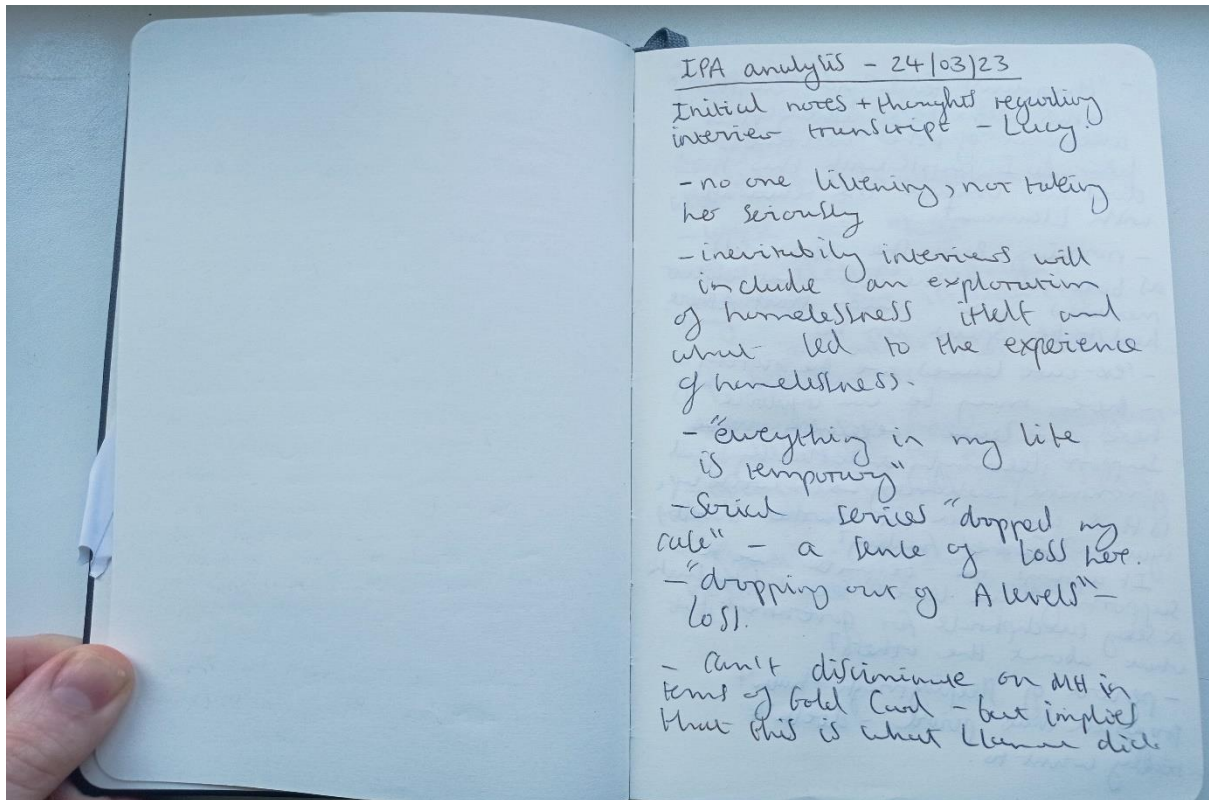 IPA analysis - 24/03/23
Initial notes + thoughts regarding
interview transcript - Lucy.
- no one listening, not taking
her seriously
- inevitably interviews will
include an exploration
of homelessness itself and
what led to the experience
of homelessness.
- "everything in my life
is temporary"
- Social services "dropped my
case" - a sense of loss here.
- "dropping out of A levels" -
loss.
- Can't discriminate on MH in
terms of Gold Card - but implies
that this is what did